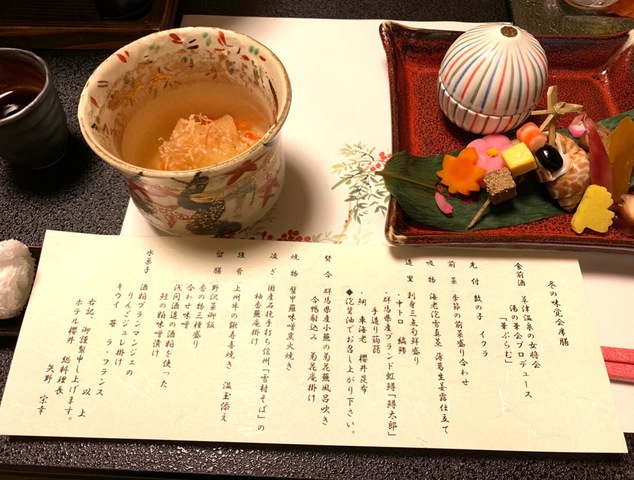 冬の味覚会席膳
食前酒 草津温泉の女将会
湯の華会プロデュース
「華ぶらむ」
先付 数の子 イクラ
前菜 季節の前菜盛り合わせ
吸物 海老泡雪真菜 薄葛生姜露仕立て
造里 刺身三点旬鮮盛り
・中トロ ・縞鯵
・群馬県産ブランド虹鱒「鱒太郎」
手造り蒟蒻
・鯛 車海老 櫻井昆布
◆泡醤油でお召し上がり下さい。
焚合 群馬県産小蕪の菊花蕪風呂吹き
合鴨射込み 菊花庵掛け
焼物 蟹甲羅味噌炭火焼き
凌ぎ 国産石挽手打ち信州「雪村そば」の
柚香蕪庵掛け
強肴 上州牛の鋤寿喜焼き 温玉添え
留膳 野沢菜御飯
香の物三種盛り
合わせ味噌
浅間酒造の酒粕を使った
鮭の粕味噌漬け
水菓子 酒粕ブランマンジェの
りんごジュレ掛け
キウイ 苺 ラ・フランス
以上
右記、御謹製申し上げます。
ホテル櫻井 総料理長
矢野 宗幸